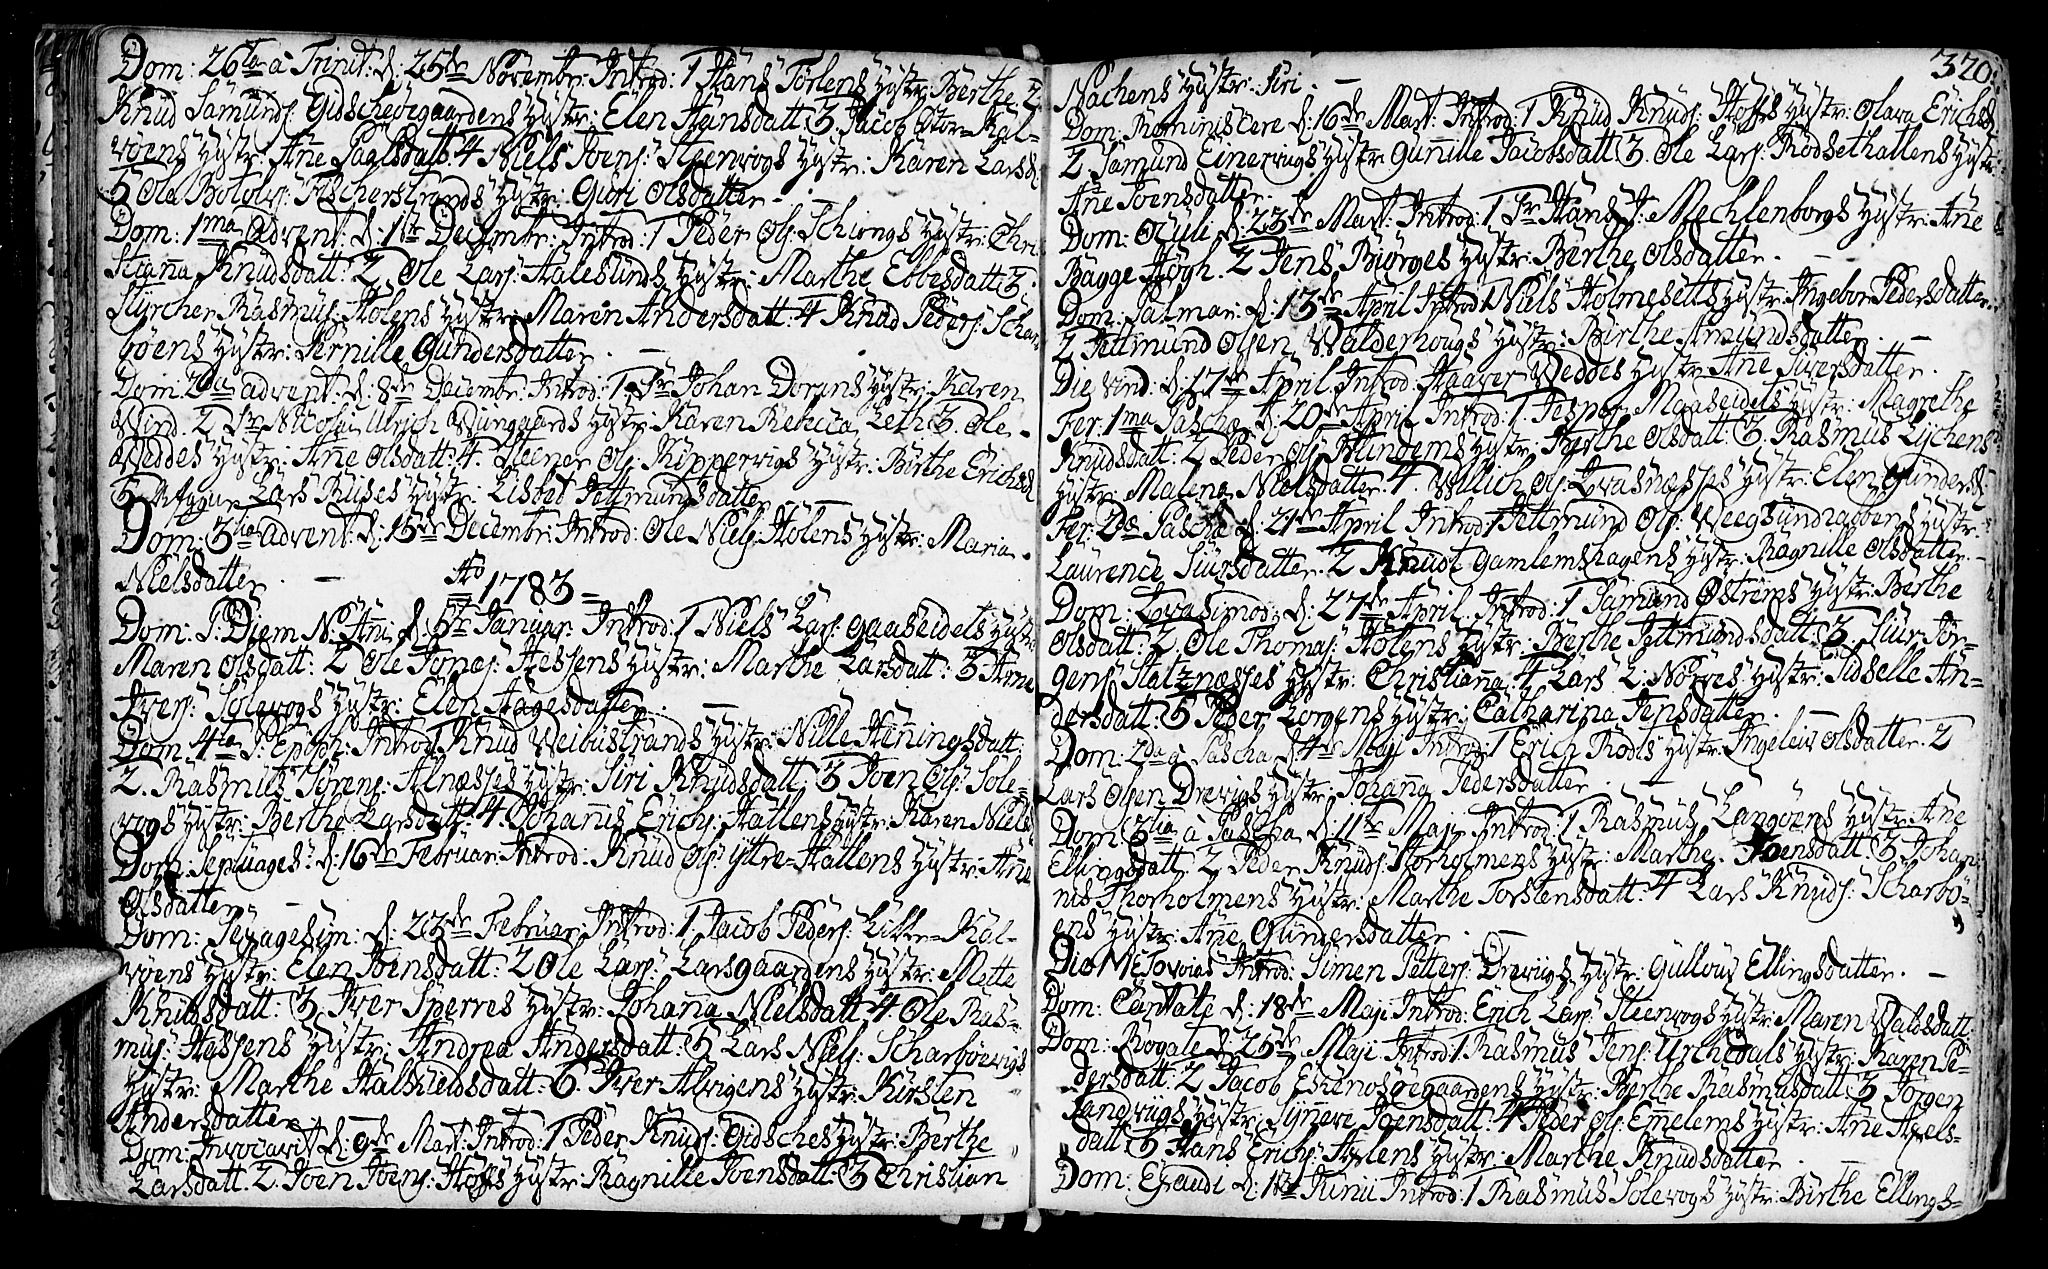 Dom: 26ta à Trinit: d: 25de Novembr: Introd: 1 Hans Torlens Hystr: Berthe. 2.
Knud Samunds: Gidscheöegaardens Hystr: Elen Hansdatt: 3. Jacob Stor=Kal-
vöens Hystr: Ane Paalsdatt: 4 Niels Joens: Steenvogs Hystr: Karen Larsd:
5 Ole Botolvs: Fischerstrands Hystr: Guri Olsdatter. -
Dom: 1ma Advent: d: 1ste Decembr: Introd: 1 Peder Ols: Schirngs Hystr: Chri
Stiana Knudsdatt: 2 Ole Lars: Aalesunds Hystr: Marthe Ebbesdatt: 3.
Styrcher Rasmus: Holens Hystr: Maren Andersdatt: 4 Knud Peders: Schar
böens Hystr: Pernille Gundersdatter. -
Dom: 2da advent: d: 8de Decembr: Introd: 1 Sr Johan Doruns Hystr: Karen
Wind. 2 Sr Nicolai Ulrich Wüngaards Hystr: Karen Rebecca Leth 3. Ole
Weddes Hystr: Ane Olsdatt: 4. Steener Ols: Kippervigs Hystr: Birthe Erichsd:
5 Afggun Lars Riises Hystr: Lisbed Pettmunsdatter. -
Dom: 3tia advent: d: 15de Decembr: Introd: Ole Niels: Holens Hystr: Maria
Nielsdatter. -
Ao 1783
Dom: P: Diem N: Ani: d: 5te Januar: Introd: 1 Niels Lars: Gaaseidets Hystr:
Maren Olsdatt: 2 Ole Jonæs: Hessens Hystr: Marthe Larsdatt: 3 Arne
Ivers: Solevogs Hystr: Elen Aagesdatter. -
Dom 4ta P: Epiph: Introd: 1 Knud Weibustrands Hystr: Nille Heningsdatt:
2. Rasmus Sörens: Alnæsses Hystr: Siri Knudsdatt: 3 Joen Ols: Sole-
vogs Hystr: Berthe Larsdatt: 4. Johanis Erichs: Hallens Hystr: Karen Nielsd:
Dom: Septuages: d: 16de Februar: Introd: Knud Ols: Ytre=Hallens Hystr: Ane
Olsdatter. -
Dom: Sexagesim: d: 23de Februar: Introd: 1. Jacob Peders: Lille=Kal-
vöens Hystr: Elen Joensdatt: 2 Ole Lars: Larsgaardens Hystr: Mette
Knudsdatt: 3. Iver Sperres Hystr: Johana Nielsdatt: 4 Ole Ras-
mus: Hessens Hystr: Andrea Andersdatt: 5 Lars Niels: Scharböevigs
Hystr: Marthe Halskieldsdatt: 6 Iver Alvigens Hystr: Kirsten
Andersdatter.
Dom: Invocavit d: 9de Mart: Introd: 1 Peder Knuds: Gidsches Hystr: Berthe
Larsdatt: 2. Joen Joens: Hoffs Hystr: Ragnille Joensdatt: 3 Christian
320.
Nachens Hystr: Siri. -
Dom: Reminiscere d: 16de Mart: Introd: 1 Knud Knuds: Hoffs Hystr: Olava Erichsd:
2. Samund Einervugs Hystr: Gunille Jacobsdatt: 3. Ole Lars: Rodsethallens Hystr:
Ane Joensdatter. -
Dom: Oculi d: 23de Mart: Introd: 1 Sr Hans J: Mechlenborgs Hystr: Ane
Bagge Högh. 2 Jens Björges Hystr: Berthe Olsdatter. -
Dom: Palmar: d: 13de April Introd: 1 Niels Holmesetts Hystr: Ingebor Pedersdatter.
2 Pettmund Olsen Walderhougs Hystr: Birthe Amundsdatter. -
Die Virid: d: 17de April Introd: Haaver Weddes Hystr: Ane Siversdatter.
Fer: 1ma Paschæ d: 20de April Introd: 1 Jesper Maaseidets Hystr: Magrethe
Knudsdatt: 2 Peder Ols: Hundems Hystr: Berthe Olsdatt: 3. Rasmus Lychens
Hystr: Malena Nielsdatter. 4. Willich Ols: Qvasnæsses Hystr: Elen Gundersd:
Fer: 2da Paschæ d: 21de April Introd: 1 Pettmund Ols: Weegsundragbens Hystr:
Laurence Siursdatter. 2 Knudt Gamlemshagens Hystr: Ragnille Olsdatter.
Dom: Qvasimod: d: 27de April Introd: 1 Samund Östrems Hystr: Berthe
Olsdatt: 2. Ole Thomas: Holens Hystr: Berthe Pettmundsdatt: 3. Siur Jör-
gens: Hatznæsses Hystr: Christiana. 4 Lars L: Nörves Hystr: Sidselle An-
dersdatt: 5 Peder Lorgens Hystr: Catharina Jensdatter.
Dom: 2da à Pascha d: 4de Maji Introd: 1 Erich Rodls Hystr: Ingeleiv Olsdatter. 2
Lars Olsen Drevigs Hystr: Johana Pedersdatter. -
Dom: 3tia à Pascha d: 11te Maji Introd: 1 Rasmus Langöens Hystr: Ane
Ellingsdatt: 2 Peder Knuds: Storholmens Hystr: Marthe Joensdatt: 3 Johan
nis Thorholmens Hystr: Marthe Torstensdatt: 4 Lars Knuds: Scharbö-
ens Hystr: Ane Gundersdatter. -
Die Introd: Simen Petters: Drevigs Hystr: Gullouv Ellingsdatter. -
Dom: Cantate d: 18de Maji Introd: Erich Lars: Steenvogs Hystr: Maren Waldsdatt:
Dom: Rogate d: 25de Maji Introd: 1 Rasmus Jens: Urchedals Hystr: Karen Pe-
dersdatt: 2 Jacob Eskenosgegaardens Hystr: Berthe Rasmusdatt: 3 Jörgen
Sandvigs Hystr: Synneve Joensdatt: 4 Peder Ols: Emelems Hystr: Ane Axels-
datt: 5 Hans Erichs: Holens Hystr: Marthe Knudsdatter.
Dom: Exaudi d: 1ste Junii Introd: 1 Rasmus Solevogs Hystr: Birthe Ellings-